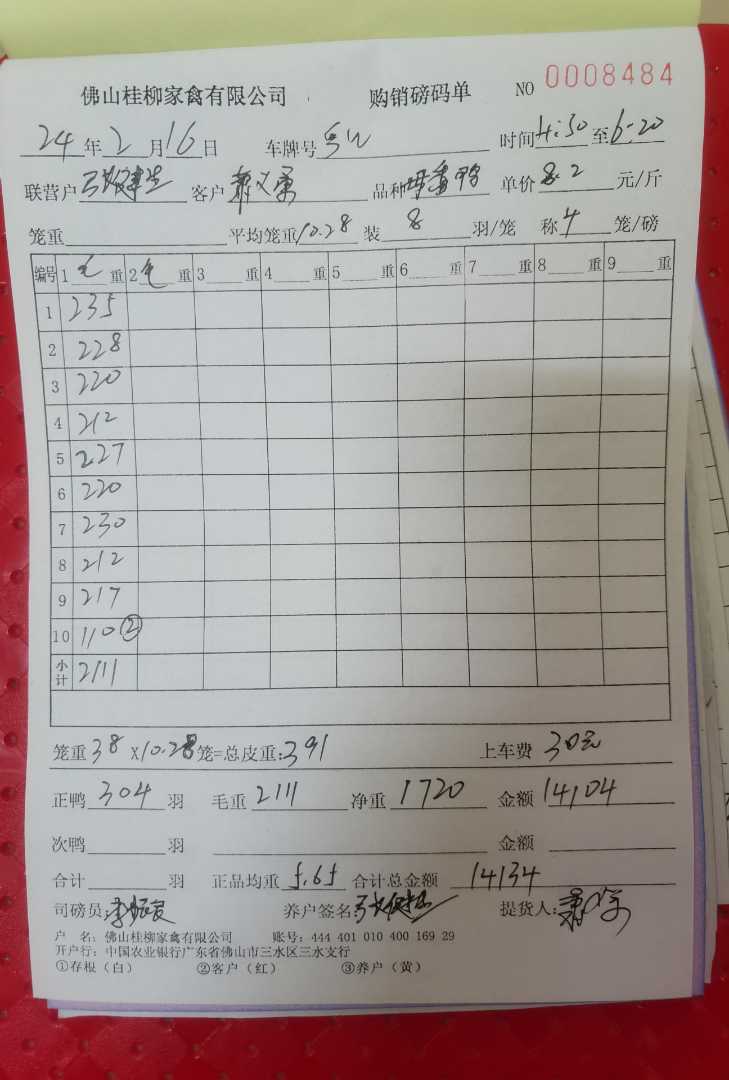 佛山桂柳家禽有限公司 购销磅码单 NO 0008484
24年2月16日 车牌号 时间4:30至6:20
联营户 客户 品种 单价8.2元/斤
笼重 平均笼重10.28 装8羽/笼 称4笼/磅
编号 1毛重 2毛重 3重 4重 5重 6重 7重 8重 9重
1 235
2 228
3 220
4 212
5 227
6 220
7 230
8 212
9 217
10 110②
小计 2111
笼重38×10.28笼=总皮重:391 上车费30元
正鸭304羽 毛重2111 净重1720 金额14104
次鸭 羽 金额
合计 羽 正品均重5.65 合计总金额14134
司磅员: 养户签名: 提货人:
户 名:佛山桂柳家禽有限公司 账号:444 401 010 400 169 29
开户行:中国农业银行广东省佛山市三水区三水支行
①存根(白) ②客户(红) ③养户(黄)